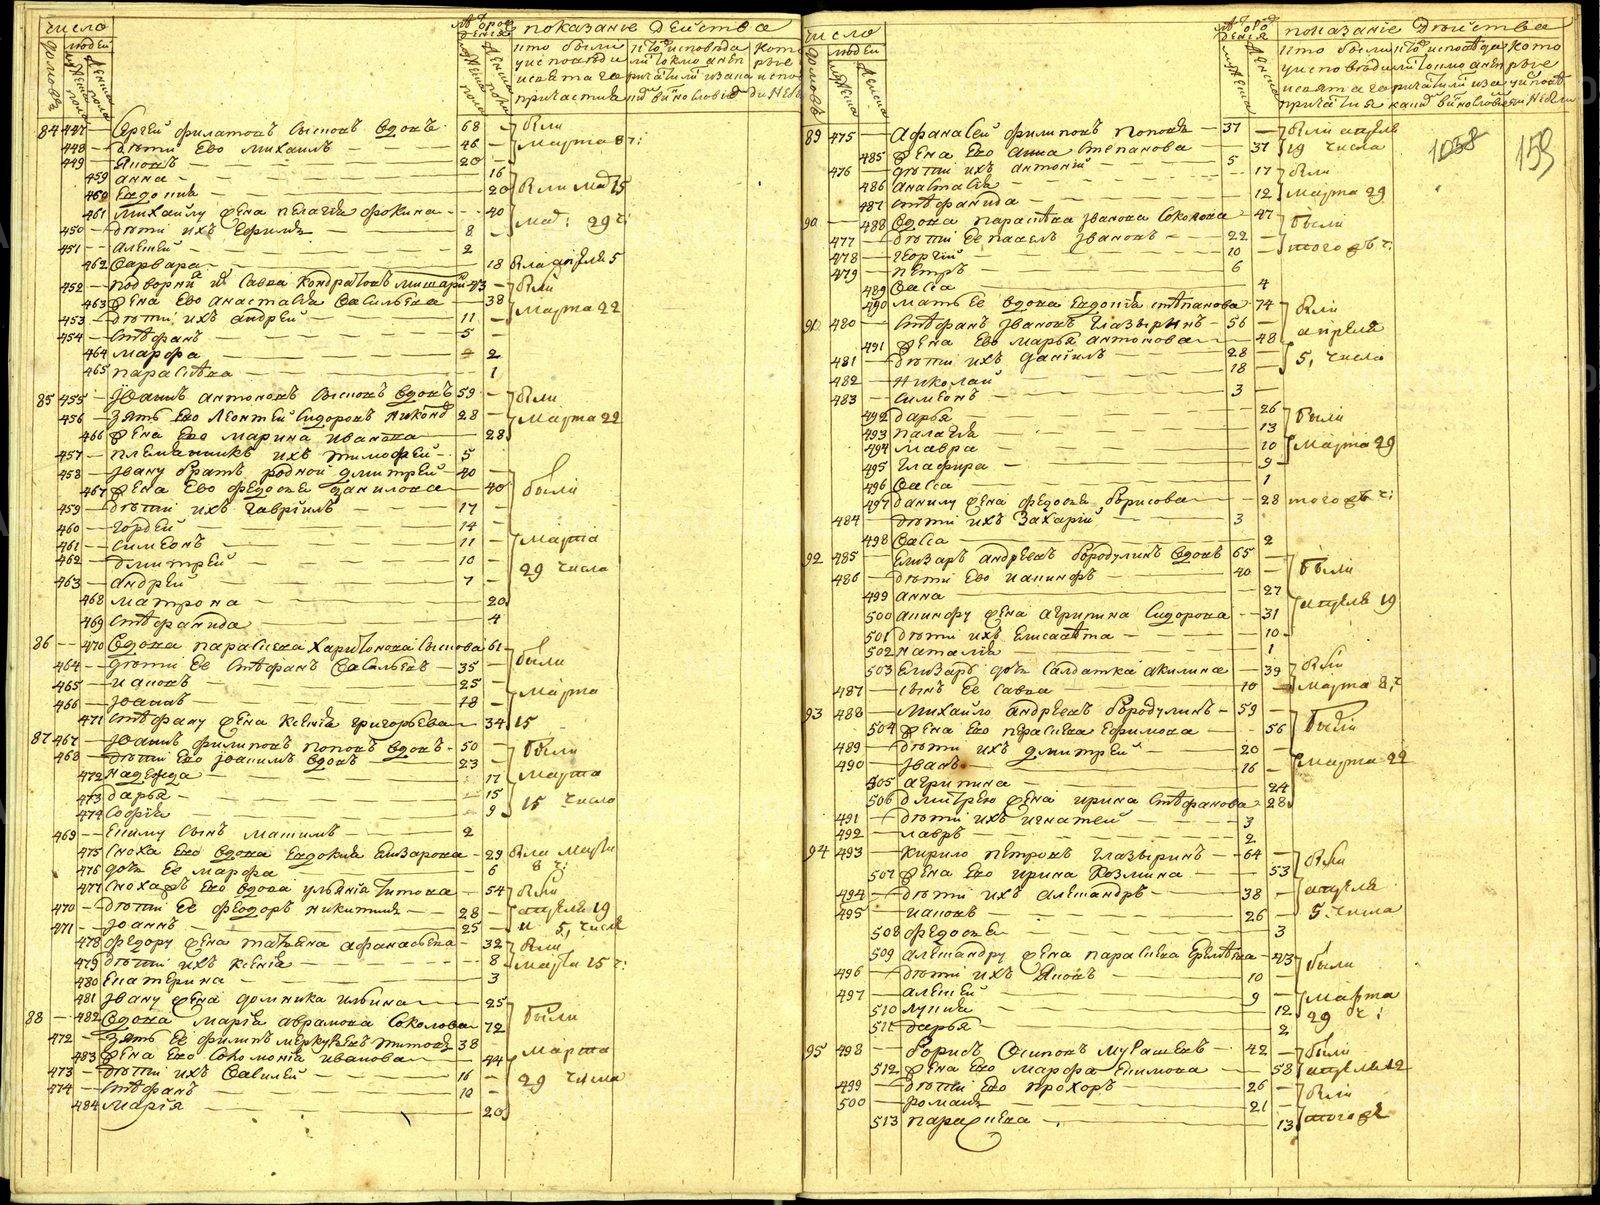 число
показанiе действа
домовъ
людей
84 447 Сергей филатовъ вдовъ 68
были
448 дети ево михаилъ 46
марта 8 ч:
449 Яковъ 20
459 анна 16
460 Евдокия 20
461 михайлу жена пелагея фокина 40
29 ч:
450 дети ихъ Ефимъ 8
451 алексей 2
462 варвара 18
была апреля 5
452 Савва Кондратовъ 43
были
463 жена ево анастасия васильева 38
марта 22
453 дети ихъ андрей 11
454 Стефанъ 5
464 марфа 2
465 параскева 1
85 455 Iоаннъ антоновъ вдовъ 59
были
456 зять ево Леонтей Сидоровъ 28
марта 22
466 жена ево марина иванова 28
457 племянникъ ихъ тимофей 5
458 Iвану братъ родной дмитрей 40
467 жена ево федосья данилова 40
были
459 дети ихъ гаврiилъ 17
460 гордей 14
461 Симеонъ 11
марта
462 дмитрей 10
29 числа
463 андрей 7
468 матрона 20
469 Стефанида 4
86 470 вдова параскева Харитонова 61
464 дети ее Стефанъ васильевъ 35
были
465 иаковъ 25
марта
466 Iоаннъ 18
471 Стефану жена ксения григорьева 34
15
87 467 Iоаннъ филиповъ поповъ вдовъ 50
были
468 дети ево Iоакимъ вдовъ 23
472 надежда 17
марта
473 дарья 15
15 числа
474 Софiя 9
469 Екиму сынъ максимъ 2
475 сноха ево вдова Евдокия Елизарова 29
была марта
476 дочь ее марфа 6
8 ч:
477 сноха ево вдова ульяния титова 54
были
470 дети ее феодоръ никитинъ 28
апреля 19
471 Iоаннъ 25
и 5, числа
478 федору жена татьяна афанасьева 32
были
479 дети ихъ ксенiя 8
марта 15 ч:
480 Екатерина 3
481 Iвану жена домника ильина 25
88 482 вдова марiя аврамова Соколова 72
были
472 зять ее филипъ меркурьевъ титовъ 38
483 жена ево Соломонiя иванова 44
марта
473 дети ихъ савелей 16
29 числа
474 Стефанъ 10
484 марiя 20
число
показанiе действа
домовъ
людей
89 475 Афанасей филиповъ поповъ 37
были апреля
1058 159
485 жена ево анна Степанова 37
19 числа
476 дети ихъ антонiй 5
486 анастасiя 17
были
487 Стефанида 12
марта 29
90 488 вдова параскева Iванова Соколова 47
были
477 дети ее павелъ Iвановъ 22
того ж ч:
478 георгiй 10
479 петръ 6
489 васса 4
490 мать ее вдова Евдокiя степанова 74
были
91 480 Стефанъ Iвановъ глазыринъ 56
апреля
491 жена ево марья антонова 48
481 дети ихъ данiилъ 28
5, числа
482 николай 18
483 Симеонъ 3
492 дарья 26
были
493 палагея 13
494 мавра 10
марта 29
495 глафира 9
496 васса 1
497 данилу жена федосья борисова 28
того ж ч:
484 дети ихъ Захарiй 3
498 васса 2
92 485 Елизаръ андреевъ бородулинъ вдовъ 65
были
486 дети ево иакинфъ 40
499 анна 27
апреля 19
500 акинфу жена агрипина Сидорова 31
501 дети ихъ Елисавета 10
502 наталiя 1
503 Елизаръ дочь салдатка акилина 39
были
487 сынъ ее савва 10
марта 8, ч
93 488 михайло андреевъ бородулинъ 59
были
504 жена ево параскева Ефимова 56
489 дети ихъ дмитрей 20
490 Iванъ 16
марта 22
505 агрипина 24
506 дмитрею жена ирина Стефанова 28
491 дети ихъ игнатей 3
492 лавръ 2
94 493 Кирило петровъ глазыринъ 64
были
507 жена ево ирина Козмина 53
494 дети ихъ александръ 38
апреля
495 иаковъ 26
5 числа
508 федосья 3
509 александру жена параскева 43
были
496 дети ихъ Яковъ 10
497 алексей 9
марта
510 лукия 12
29 ч:
511 дарья 2
95 498 борисъ Осиповъ мурашевъ 42
были
512 жена ево марфа Екимова 58
апреля 12
499 дети ево прохоръ 26
были
500 романъ 21
того ж
513 параскева 13